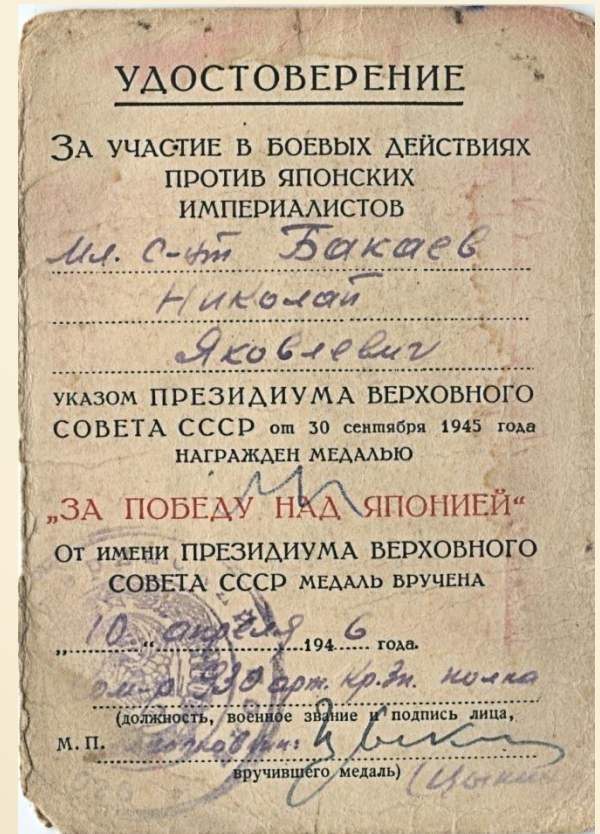 УДОСТОВЕРЕНИЕ
ЗА УЧАСТИЕ В БОЕВЫХ ДЕЙСТВИЯХ
ПРОТИВ ЯПОНСКИХ
ИМПЕРИАЛИСТОВ
Мл. с-нт Бакаев
Николай
Яковлевич
УКАЗОМ ПРЕЗИДИУМА ВЕРХОВНОГО
СОВЕТА СССР от 30 сентября 1945 года
НАГРАЖДЕН МЕДАЛЬЮ
„ЗА ПОБЕДУ НАД ЯПОНИЕЙ“
ОТ ИМЕНИ ПРЕЗИДИУМА ВЕРХОВНОГО
СОВЕТА СССР МЕДАЛЬ ВРУЧЕНА
„10“ апреля 1946 года.
930 арт. Кр. Зн. полка
(должность, военное звание и подпись лица,
М. П.
вручившего медаль)